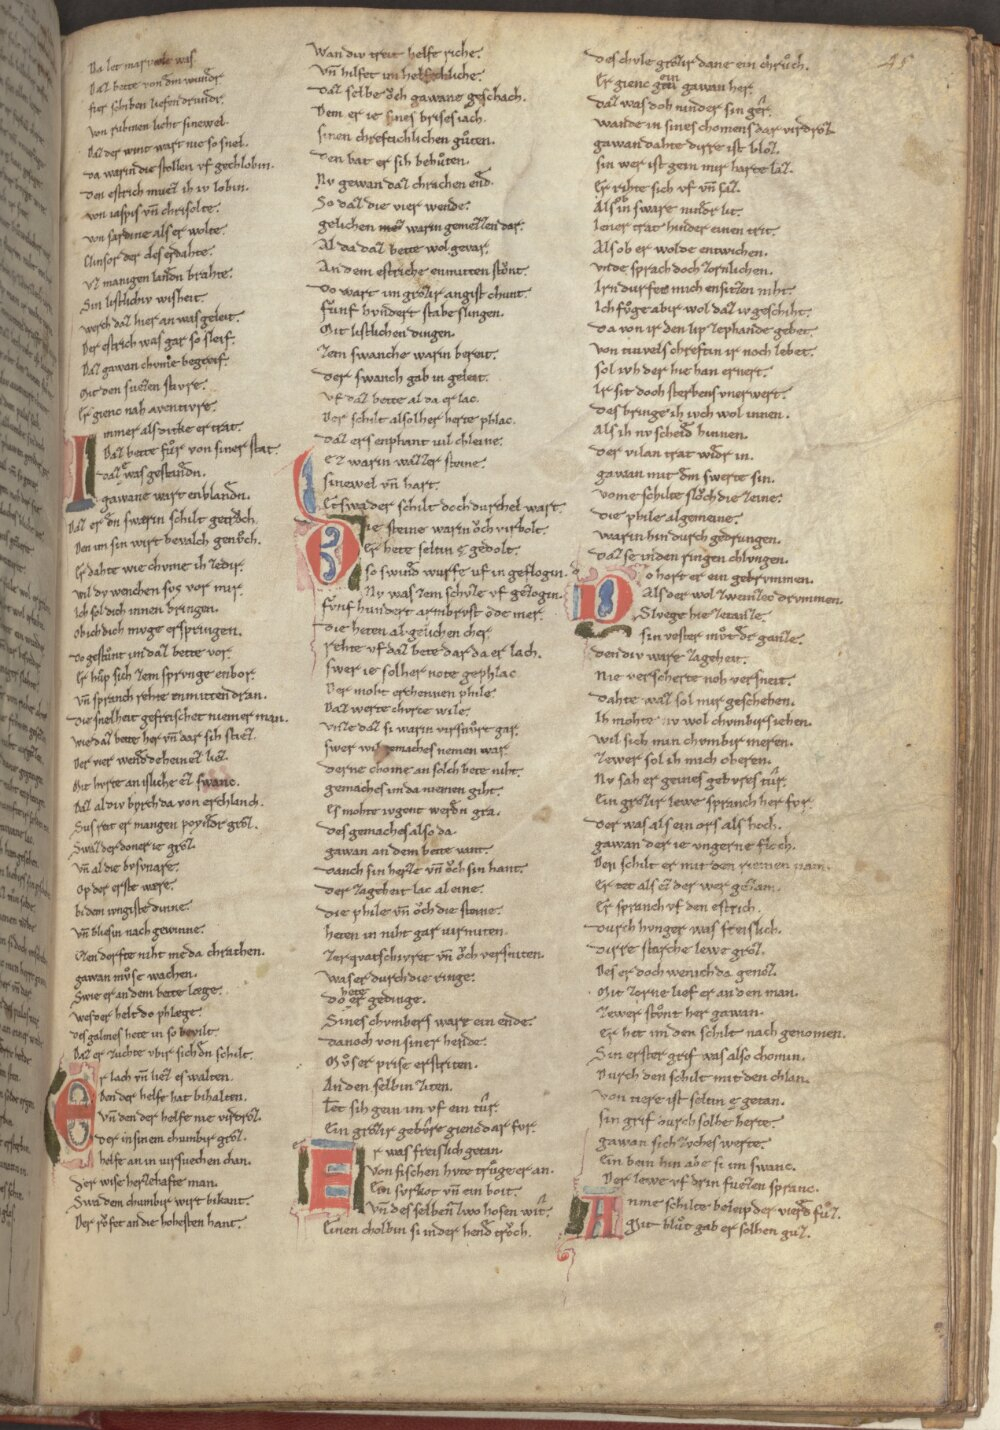 Da let marveile was.
Daz bette von dem wunder
fier schiben liefen drunder.
von rubinen licht sinewel.
Daz der wint wart nie so snel.
da warin die stollen vf gechlobin.
Den estrich muez ih iv lobin.
von iaspis vn̄ chrisolte.
von sardine als er wolte.
Clinsor der des erdahte.
vz manigen landen brahte.
Sin listichiv wisheit.
werch daz hier an was geleit.
Der estrich was gar so sleif.
Daz gawan chvme begreif.
Mit den fuezen stivre.
Er gienc nah aventivre.
Immer als dicke er trat.
Daz bette fůr von siner stat.
daz e was gestanden.
gawane wart enblanden.
Daz er den swærin schilt getrůch.
Den im sin wirt bevalch genůch.
Er dahte wie chvme ih zedir.
wil dv wenchen svs vor mir.
Ich sol dich innen bringen.
ob ich dich mvge erspringen.
Do gestůnt im daz bette vor.
Er hůp sich zem sprvnge enbor.
vn̄ spranch rehte enmitten dran.
Die snelheit gefreischet niemer man.
wie daz bette her vn̄ dar sih stiez.
Der vier wende deheine ez liez.
Mit hvrte an isliche ez swanc.
Daz al div bvrch da von erchlanch.
Sus reit er mangen poynder groz.
Swaz der doner ie groz.
vn̄ al die bvsvnære.
Op der erste were.
bi dem ivngiste dinne.
vn̄ bliesin nach gewinne.
Ezen dorfte niht me da chrachen.
gawan můse wachen.
Swie er an dem bette læge.
wes der helt do phlæge.
Des galmes hete in so bevilt.
Daz er zuchte vbir sich den schilt.
Er lach vn̄ liez es walten.
Den der helfe hat bihalten.
vn̄ den der helfe nie virdroz.
Der in sinem chumbir groz.
helfe an im virsuechen chan.
Der wise herzehafte man.
Swa dem chumbir wirt bikant.
Der růfet an die hohesten hant.
Wan div treit helfe riche.
vn̄ hilfet im helfechliche.
Daz selbe ǒch gawane geschach.
Dem er ie sines brises iach.
sinen chreftichlichen gůten.
Den bat er sih behůten.
Nv gewan daz chrachen ende.
So daz die vier wende.
gelichen warin gemezzen dar.
Al da daz bette wol gevar.
An dem estriche enmitten stůnt.
Do wart im grozir angist chunt.
fvnf hvndert stabeslingen.
Mit listlichen dingen.
zem swanche warin bereit.
Der swanch gab in geleit.
vf daz bette al da er lac.
Der schilt alsolher herte phlac.
Daz ers enphant vil chleine.
Ez warin wazzer steine.
sinewel vn̄ hart.
Etswa der schilt doch durchel wart.
Die steine warin ǒch virbolt.
Er hete seltin e gedolt.
so swinde wurfe vf in geflogin.
Nv was zem schvze vf gezogin.
fvnf hundert armbrvst ode mer.
Die heten al gelichen cher
rehte vf daz bete dar da er lach.
Swer ie solher note gephlac
Der moht erchennen phile.
Daz werte chvrce wile.
vnze daz si warin virsnůrt gar.
Swer wil gemaches nemen war.
Derne chome an solch bete niht.
gemaches im da niemen giht.
Es mohte ivgent werden gra.
Des gemaches also da.
gawan an dem bette vant.
Danch sin herze vn̄ ǒch sin hant.
Der zageheit lac al eine.
Die phile vn̄ ǒch die steine.
heten in niht gar virmiten
zerqvatschivret vn̄ ǒch versniten.
was er durch die ringe.
do hete er gedinge.
Sines chvmbers wart ein ende.
dannoch von siner hende.
Můser prise erstriten.
An den selbin ziten.
Tet sih gein im vf ein tůr.
Ein grozir gebůre gienc dar fvr.
Er was freislich getan.
Von fischen hvte trůge er an.
Ein svrkot vn̄ ein boit.
vn̄ des selben zwo hosen wit.
Einen cholbin si in der hende trůch.
Des chvle grozir dane ein chrůch.
Er gienc gein gawan her.
daz was doh ninder sin ger.
wande in sines chomens dar virdroz.
gawan dahte dirre ist bloz.
Sin wer ist gein mir harte laz.
Er rihte sich vf vn̄ saz.
Als ob in sware ninder lit.
Iener trat hinder einen trit.
Als ob er wolde entwichen.
vnde sprach doch zornlichen.
Irn durfet mich ensitzen niht.
Ich fůge abir wol daz iv geschiht.
Da von ir den lip zephande gebet.
von tiuvels chreftin ir noch lebet.
sol ivh der hie han ernert.
Ir sit doch sterbens vnerwert.
Des bringe ih ivch wol innen.
Als ih nv scheide hinnen.
Der vilan trat wider in.
gawan mit dem swerte sin.
vome schilte slůch die zeine.
Die phile algemeine.
warin hin durch gedrungen.
Daz se in den ringen chlvngen.
Do hort er ein gebrvmmen.
Als der wol zweinzec drvmmen.
Slvege hie zetanze.
sin vester můt der ganze.
Den div ware zageheit.
Nie verscherte noh versneit.
Dahte waz sol mir geschehen.
Ih mohte nv wol chvmbirs iehen.
wil sich min chvmbir meren.
zewer sol ih mich cheren.
Nv sah er geines gebvres tůr.
Ein grozir lewe spranch her fvr.
Der was als ein ors als hoch.
gawan der ie vngerne floch.
Den schilt er mit den riemen nam.
Er tet als ez der wer gezam.
Er spranch vf den estrich.
durch hvnger was freislich.
Dirre starche lewe groz.
Des er doch wenich da genoz.
Mit zorne lief er an den man.
zewer stůnt her gawan.
Er het im den schilt nach genomen.
Sin erster grif was also chomin.
Durch den schilt mit den chlan.
von tiere ist seltin e getan.
sin grif durch solhe herte.
gawan sich zvches werte.
Ein bein hin abe si im swanc.
Der lewe vf drin fuezen spranc.
Anme schilte beleip der vierde fůz.
Mit blůt gab er solhen guz.
45